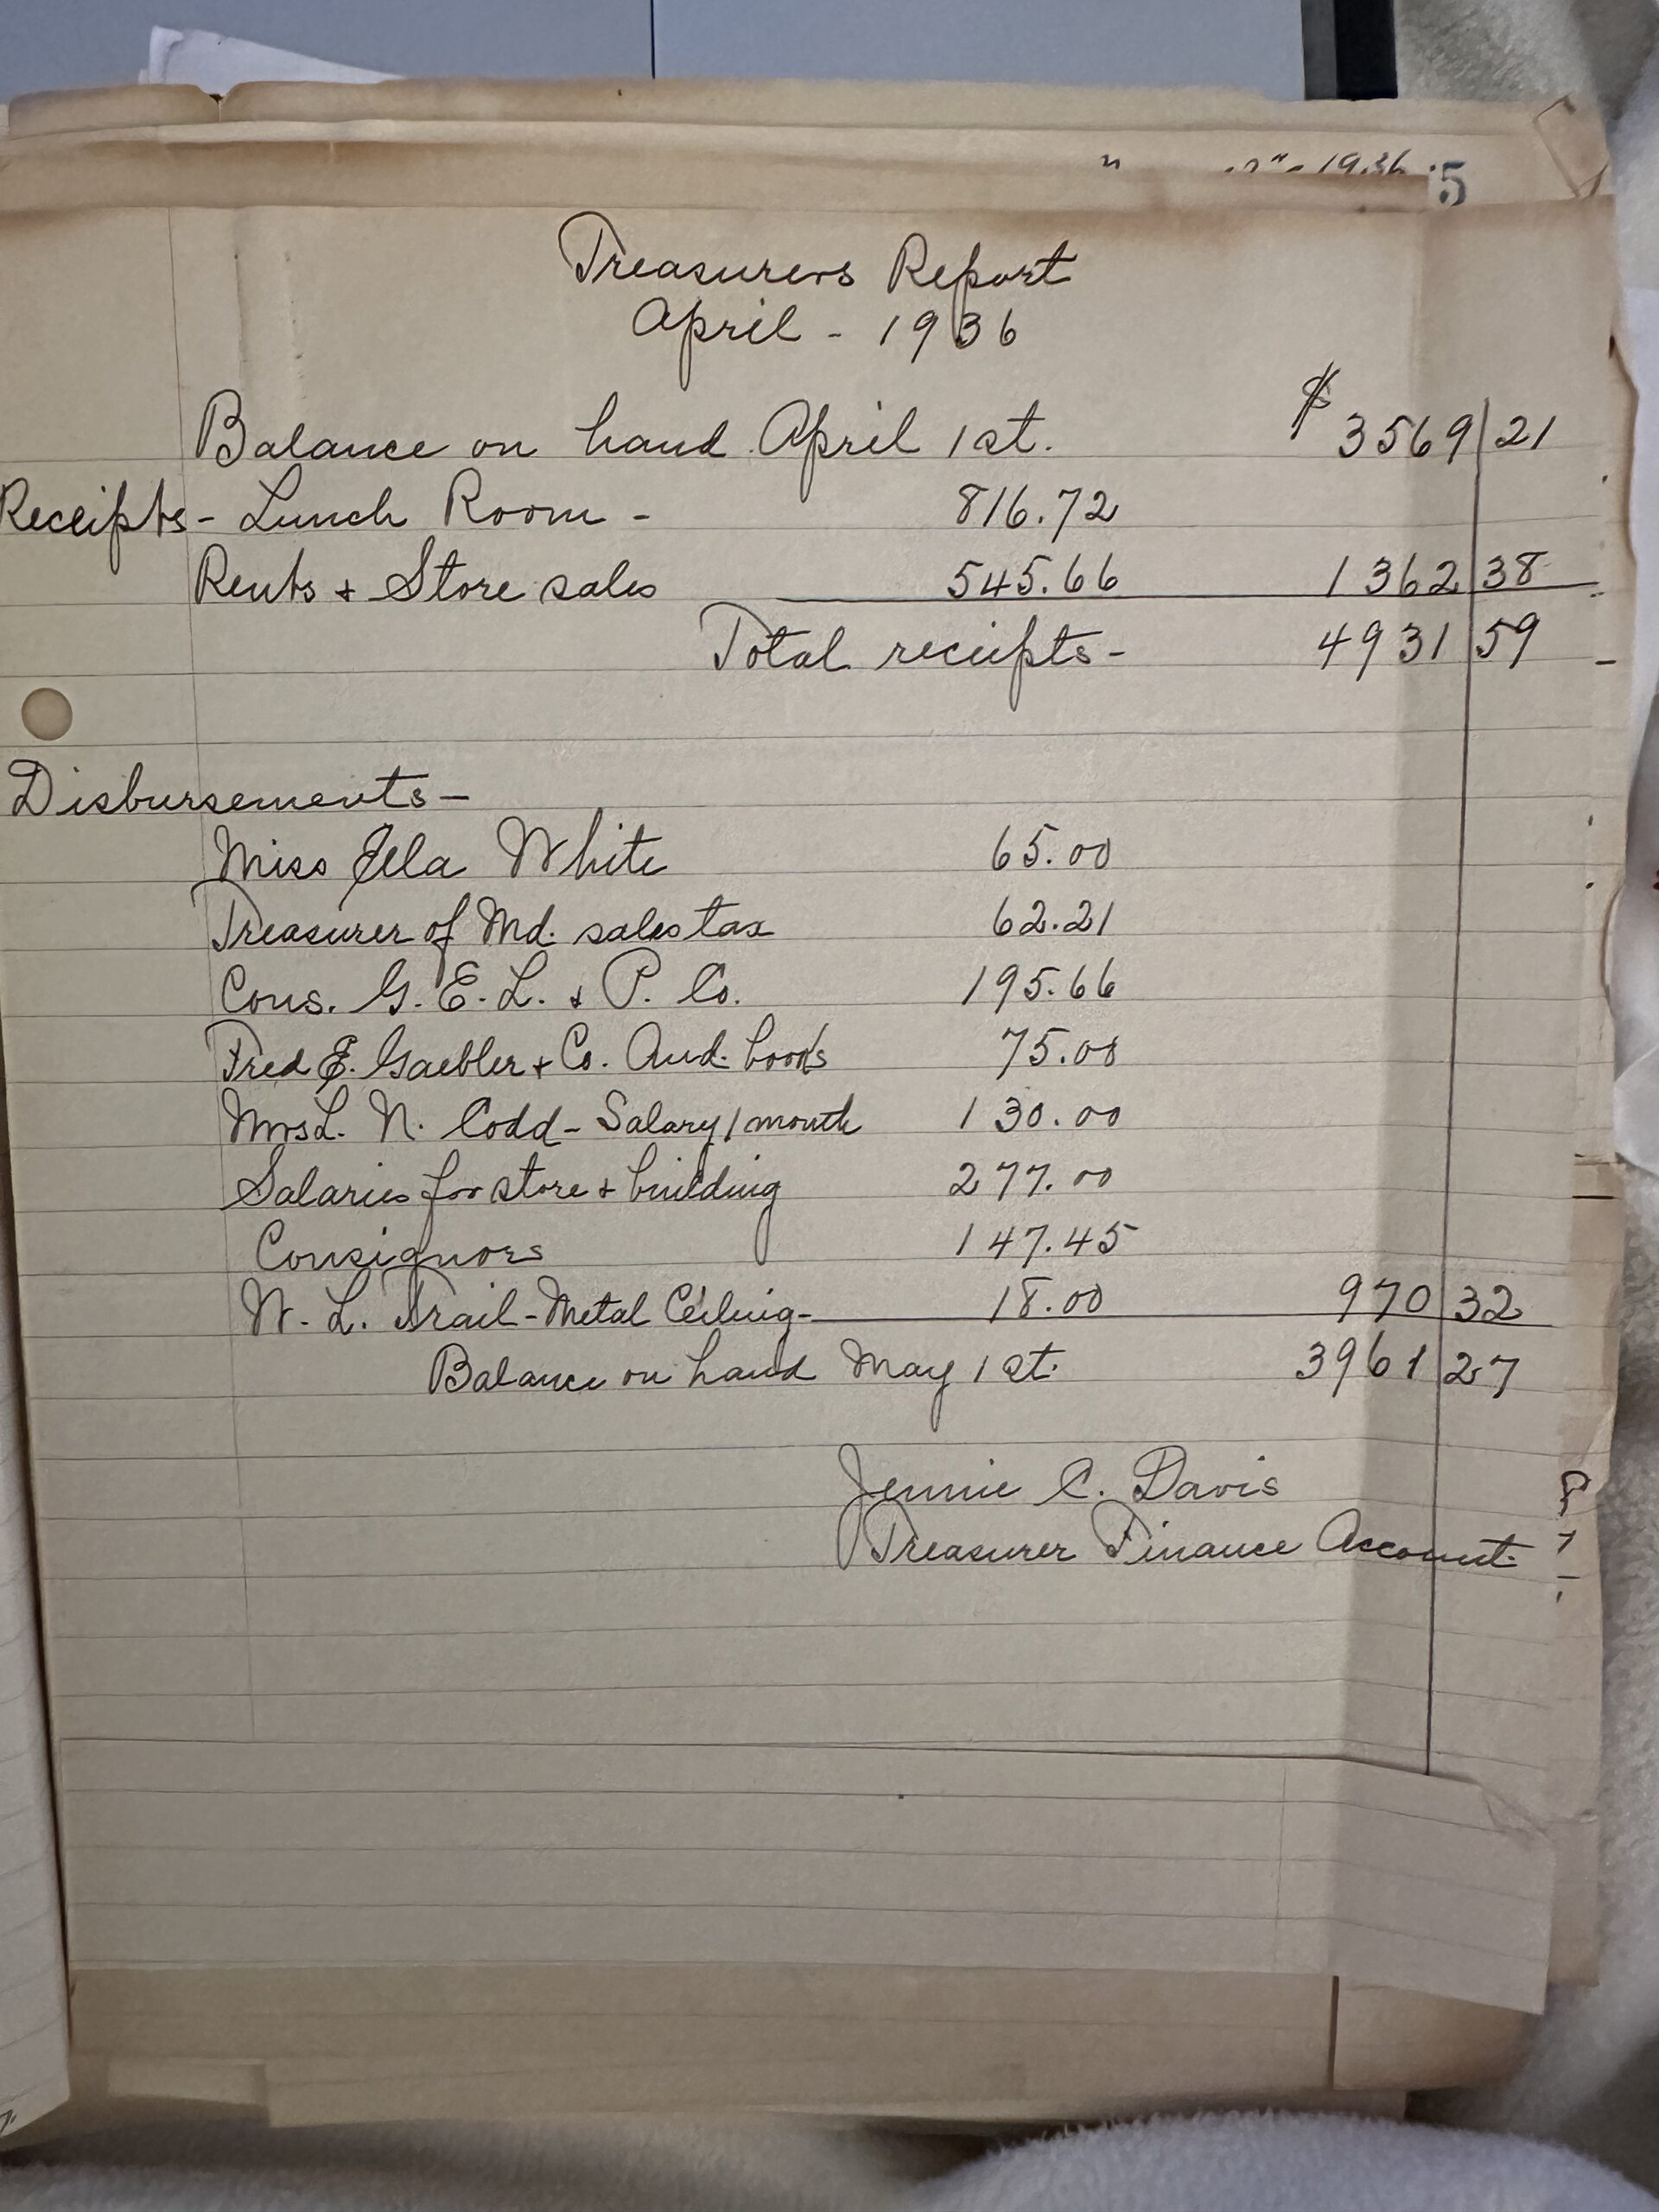 1936 5
Treasurers Report
April - 1936
Balance on hand April 1st. $3569|21
Receipts - Lunch Room - 816.72
Rents + Store sales 545.66 1362|38
Total receipts - 4931|59
Disbursements -
Miss Ella White 65.00
Treasurer of Md. sales tax 62.21
Cons. G. E. L. & P. Co. 195.66
Fred E. Gaebler + Co. Aud. books 75.00
Mrs L. N. Codd - Salary 1 month 130.00
Salaries for store + building 277.00
Consignors 147.45
W. L. Trail - Metal Ceiling - 18.00 970|32
Balance on hand May 1st. 3961|27
Jennie C. Davis
Treasurer Finance Account.